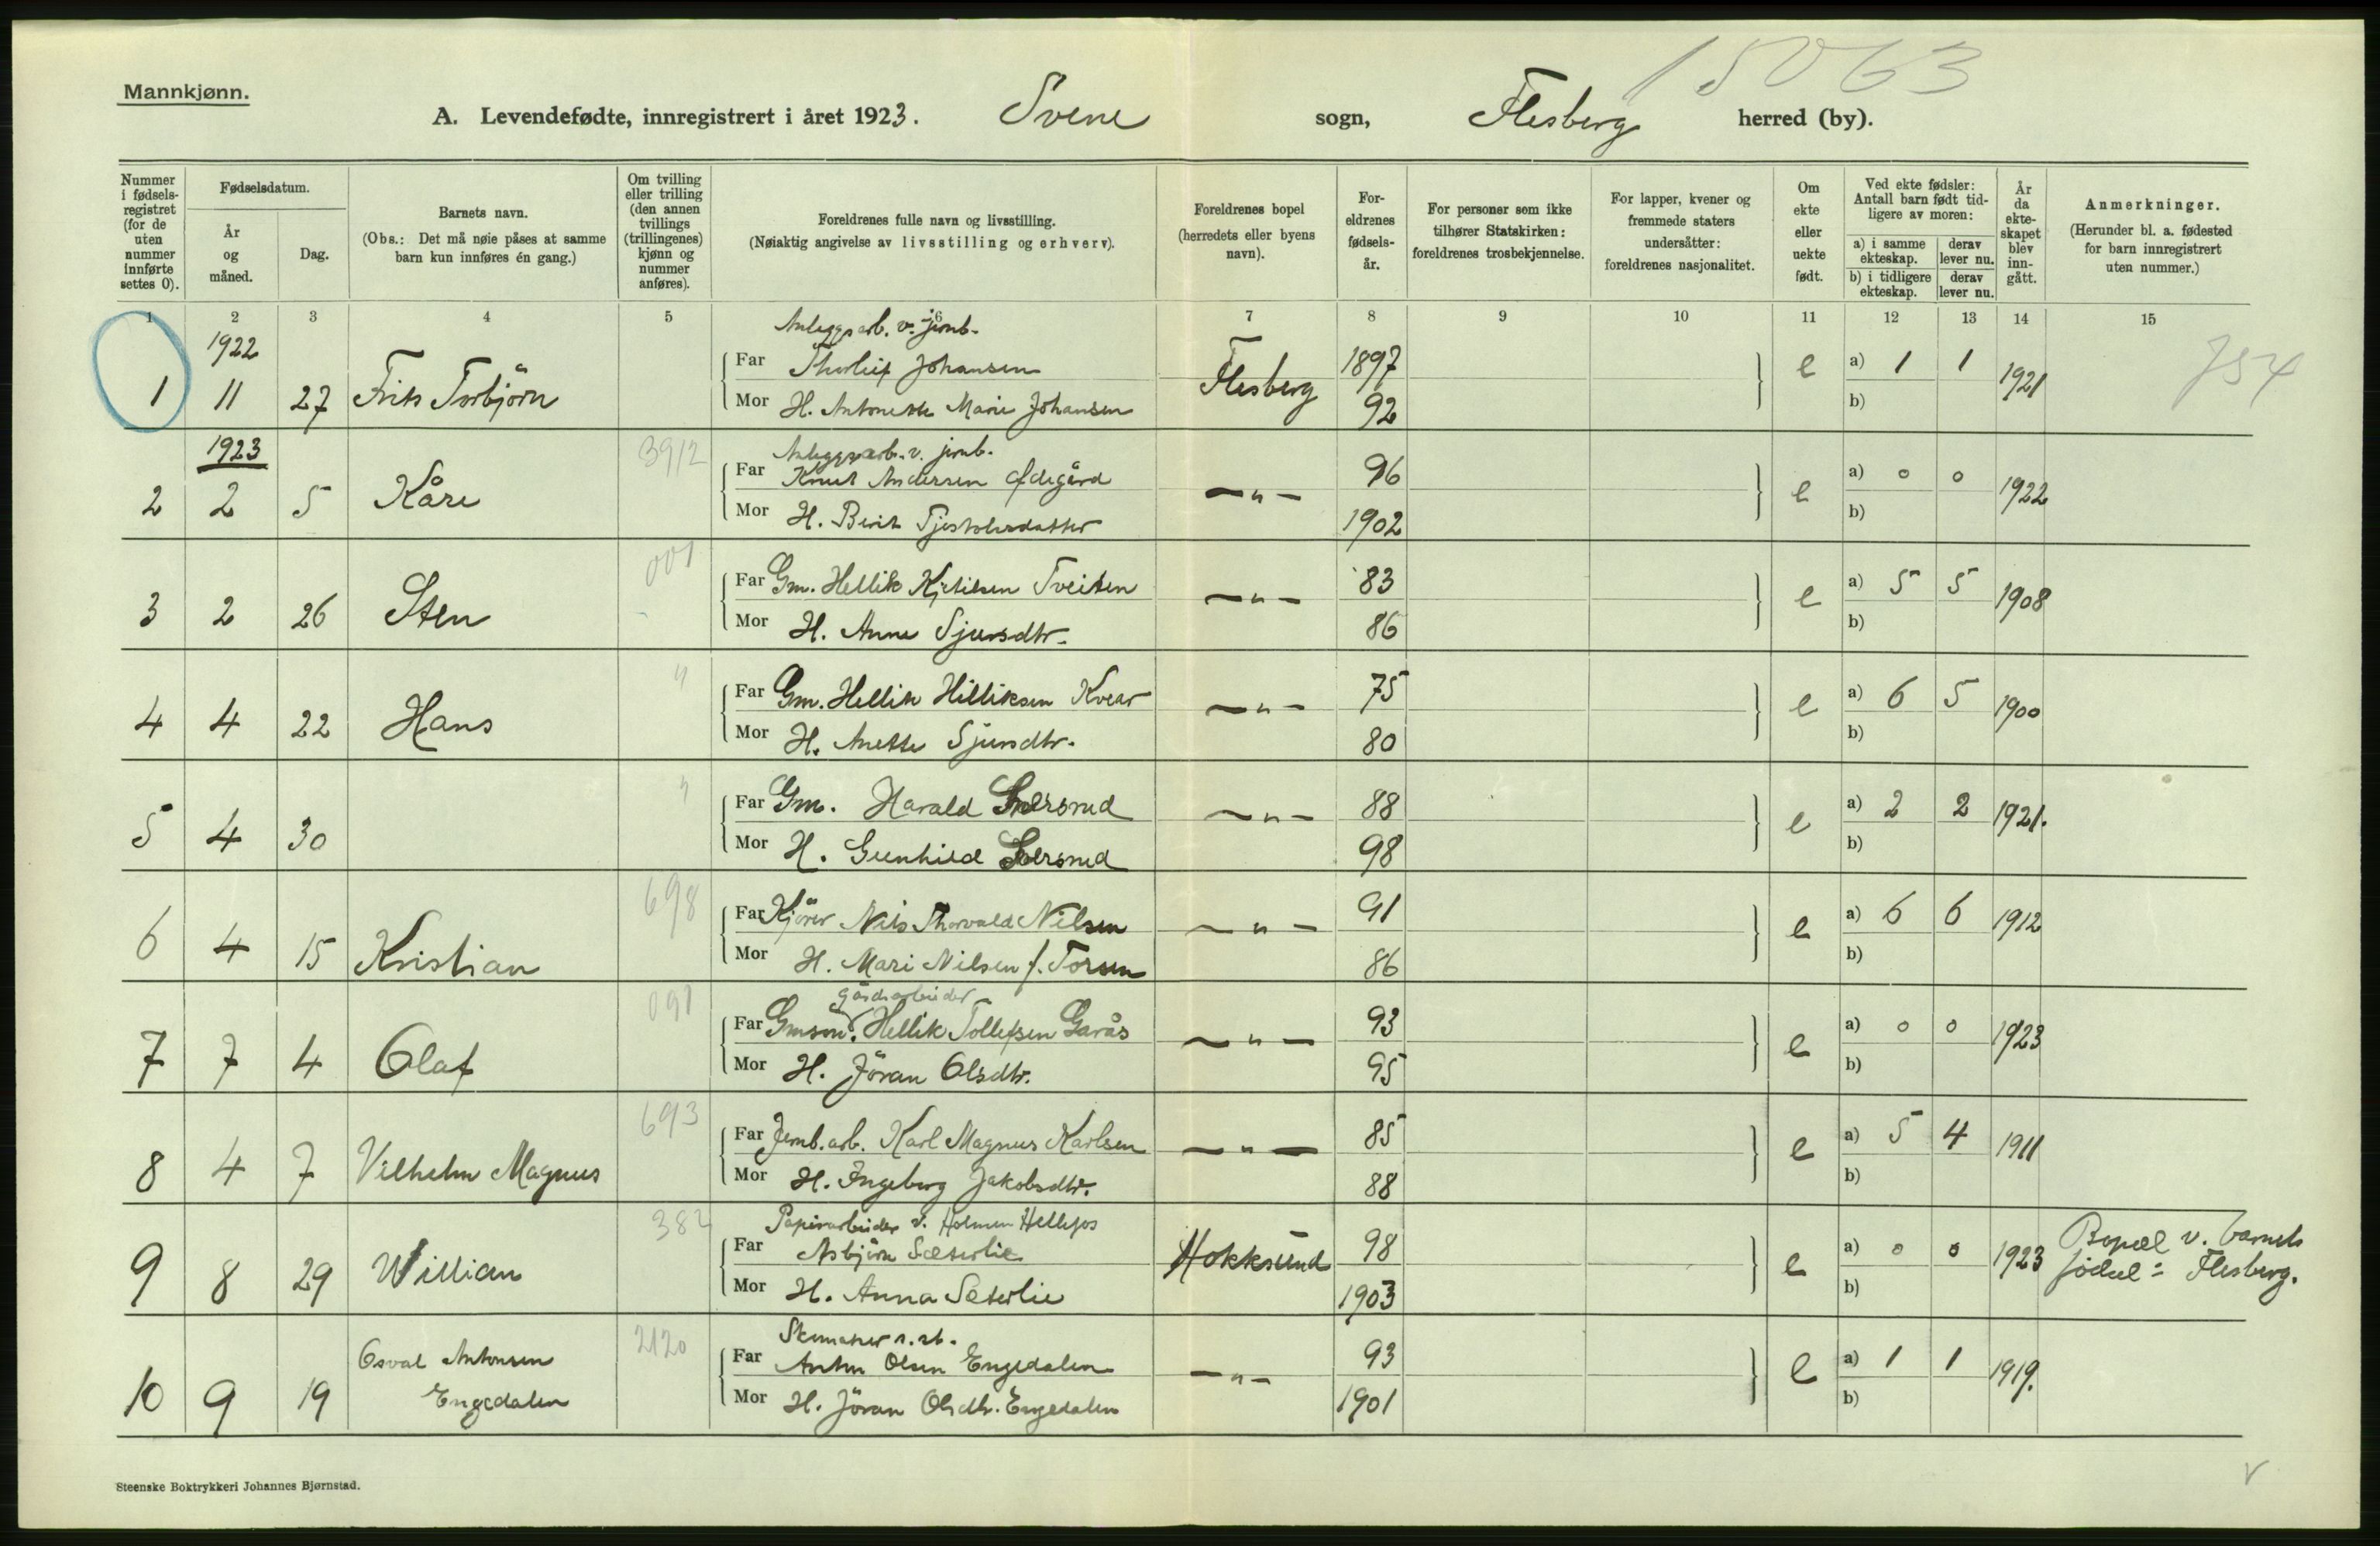 15063
Mannkjønn.
A. Levendefødte, innregistrert i året 1923. Svene sogn, Flesberg herred (by).
Nummer i fødselsregistret (for de uten nummer innførte settes 0).
Fødselsdatum.
År og måned.
Dag.
Barnets navn.
(Obs.: Det må nøie påses at samme barn kun innføres én gang.)
Om tvilling eller trilling (den annen tvillings (trillingenes) kjønn og nummer anføres).
Foreldrenes fulle navn og livsstilling.
(Nøiaktig angivelse av livsstilling og erhverv).
Foreldrenes bopel (herredets eller byens navn).
Foreldrenes fødselsår.
For personer som ikke tilhører Statskirken: foreldrenes trosbekjennelse.
For lapper, kvener og fremmede staters undersåtter: foreldrenes nasjonalitet.
Om ekte eller uekte født.
Ved ekte fødsler: Antall barn født tidligere av moren:
a) i samme ekteskap. derav lever nu.
b) i tidligere ekteskap. derav lever nu.
År da ekteskapet blev inngått.
Anmerkninger.
(Herunder bl. a. fødested for barn innregistrert uten nummer.)
1 2 3 4 5 6 7 8 9 10 11 12 13 14 15
1922
Anleggsarb. v. jernb.
1 11 27 Frits Torbjörn Far Thorleif Johansen Flesberg 1897 e a) 1 1 1921 754
Mor H. Antonette Marie Johansen 92 b)
1923
3912 Anleggsarb. v. jernb.
2 2 5 Kåre Far Knut Andersen Ødegård —"— 96 e a) 0 0 1922
Mor H. Berit 1902 b)
001
3 2 26 Sten Far Gm. Hellik Kjetilsen Tveiten —"— 83 e a) 5 5 1908
Mor H. Anne Sjursdtr. 86 b)
"
4 4 22 Hans Far Gm. Hellik Helliksen Kvear —"— 75 e a) 6 5 1900
Mor H. Anette Sjursdtr. 80 b)
"
5 4 30 Far Gm. Harald —"— 88 e a) 2 2 1921.
Mor H. Gunhild 98 b)
698
6 4 15 Kristian Far Kjörer Nils Thorvald Nilsen —"— 91 e a) 6 6 1912
Mor H. Mari Nilsen f. Torsen 86 b)
091 gårdsarbeider
7 7 4 Olaf Far Gmsøn. Hellik Tollefsen Garås —"— 93 e a) 0 0 1923
Mor H. Jöran Olsdtr. 95 b)
693
8 4 7 Vilhelm Magnus Far Jernb.arb. Karl Magnus Karlsen —"— 85 e a) 5 4 1911
Mor H. Ingeborg Jakobsdtr. 88 b)
382 Papirarbeider v. Holmen Hellefos
9 8 29 William Far Asbjörn Sæterlie Hokksund 98 e a) 0 0 1923 Bopæl v. barnets födsel = Flesberg.
Mor H. Anna Sæterlie 1903 b)
2120 Skumaker
10 9 19 Osval Antonsen Engedalen Far Anton Olsen Engedalen —"— 93 e a) 1 1 1919.
Mor H. Jöran Olsdtr. Engedalen 1901 b)
Steenske Boktrykkeri Johannes Bjørnstad.